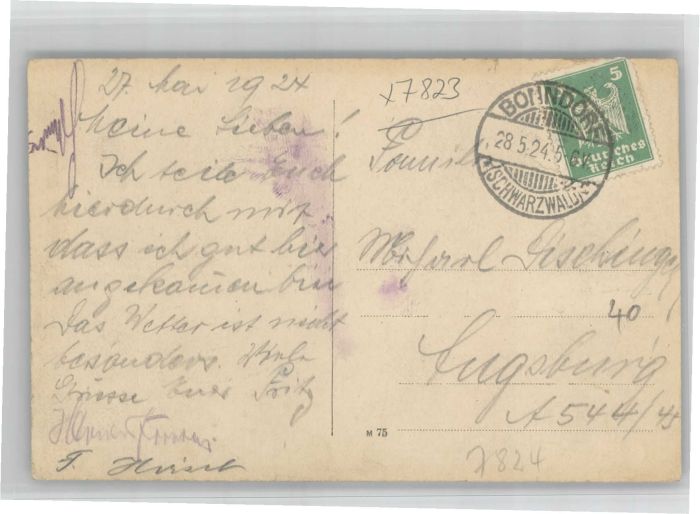 27. Mai 1924
Meine Lieben!
Ich teile Euch
hierdurch mit
dass ich gut hier
angekommen bin
Das Wetter ist nicht
besonders. Viele
Grüsse Euer Fritz
F. Hirsch
17823
BONNDORF
28.5.24.
(SCHWARZWALD)
5
Deutsches
Reich
Familie
40
Augsburg
A 544/45
M 75
7824